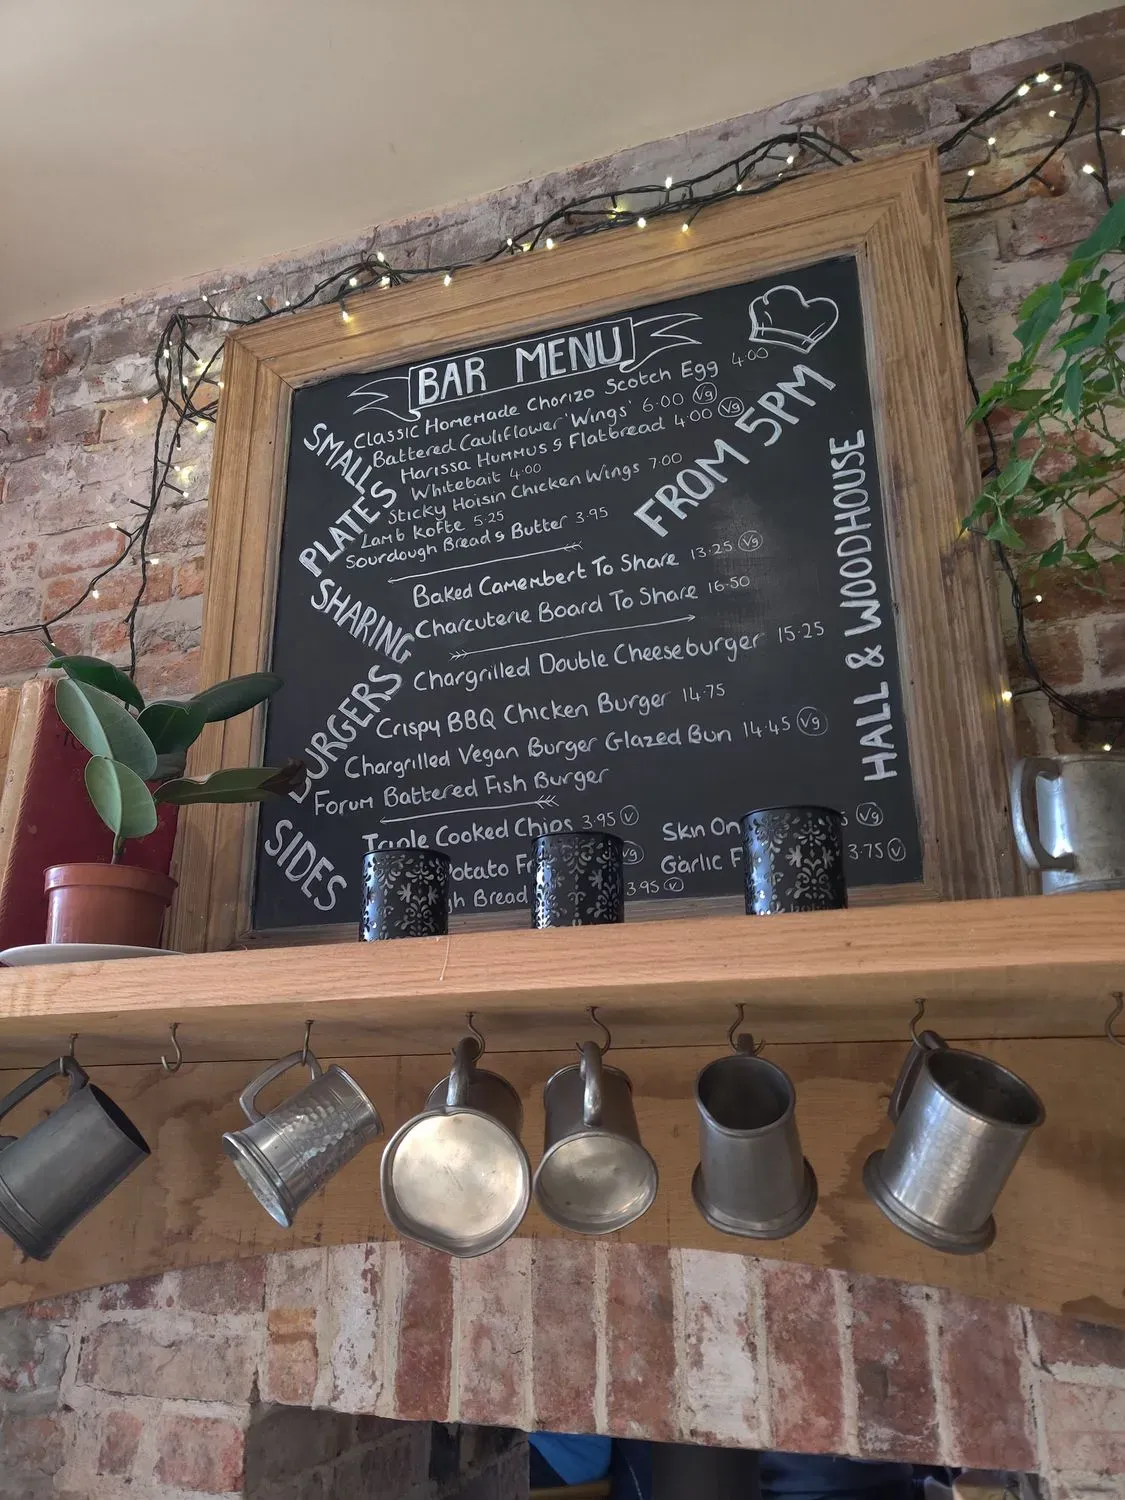 BAR MENU
SMALL PLATES
Classic Homemade Chorizo Scotch Egg 4.00
Battered Cauliflower 'Wings' 6.00 Vg
Harissa Hummus & Flatbread 4.00 Vg
Whitebait 4.00
Sticky Hoisin Chicken Wings 7.00
Lamb Kofte 5.25
Sourdough Bread & Butter 3.95
FROM 5PM
SHARING
Baked Camembert To Share 13.25 Vg
Charcuterie Board To Share 16.50
BURGERS
Chargrilled Double Cheeseburger 15.25
Crispy BBQ Chicken Burger 14.75
Chargrilled Vegan Burger Glazed Bun 14.45 Vg
Forum Battered Fish Burger
SIDES
Triple Cooked Chips 3.95 V
Potato Fr Vg
gh Bread 3.95 V
Skin On 5 Vg
Garlic F 3.75 V
HALL & WOODHOUSE